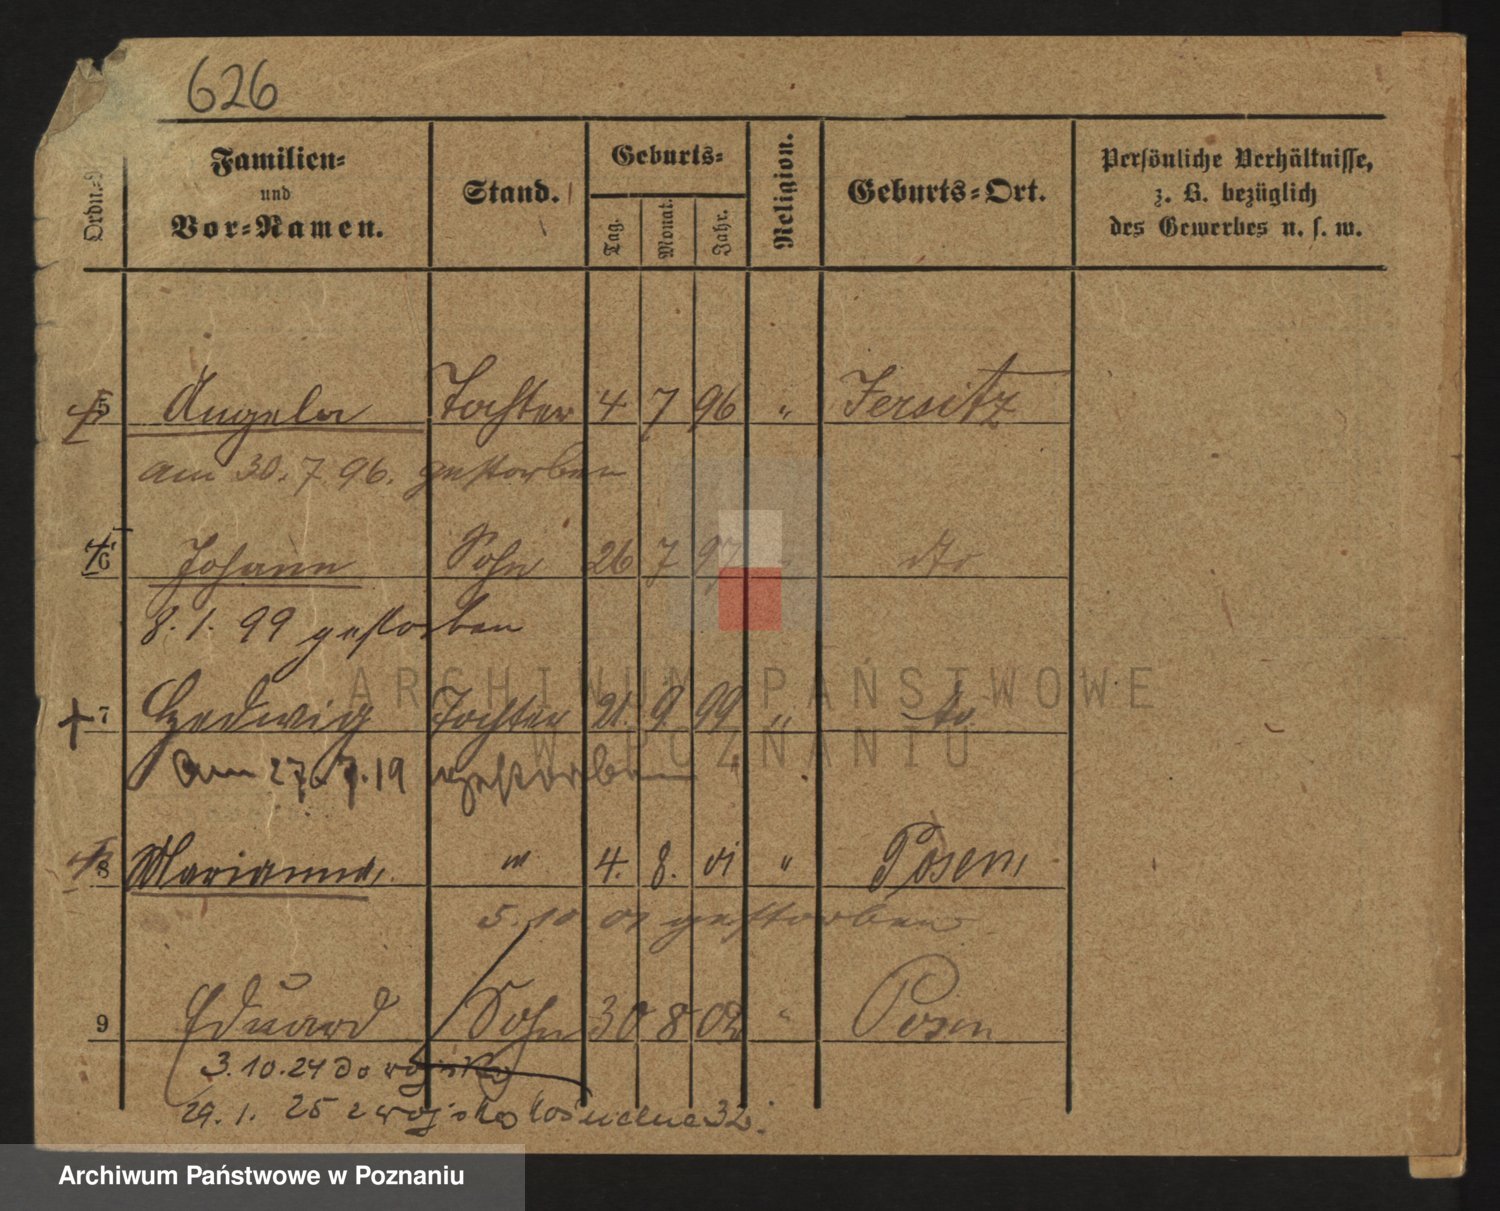 626
Ordn.-
Familien-
und
Vor-Namen.
Stand.
Geburts-
Tag.
Monat.
Jahr.
Religion.
Geburts-Ort.
Persönliche Verhältnisse,
z. B. bezüglich
des Gewerbes u. s. w.
5 Angela Tochter 4 7 96 " Jersitz
am 30. 7 96. gestorben
6 Johann Sohn 26 7 97 dto
8. 1. 99 gestorben
7 Hedwig Tochter 21. 9. 99 " dto
am 27. 7. 19 gestorben
8 Marianna " 4. 8. 01 " Posen
5. 10 01 gestorben
9 Eduard Sohn 30 8 02 " Posen
3.10.24 do wojska
29. 1. 25 z wojska 32.
ARCHIWUM PAŃSTWOWE
W POZNANIU
Archiwum Państwowe w Poznaniu